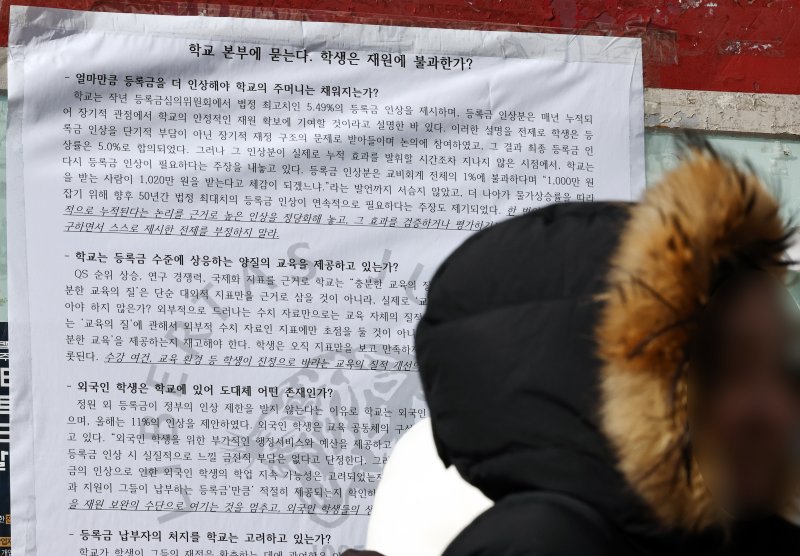 학교 본부에 묻는다. 학생은 재원에 불과한가?
- 얼마만큼 등록금을 더 인상해야 학교의 주머니는 채워지는가?
학교는 작년 등록금심의위원회에서 법정 최고치인 5.49%의 등록금 인상을 제시하며, 등록금 인상분은 매년 누적되
어 장기적 관점에서 학교의 안정적인 재원 확보에 기여할 것이라고 설명한 바 있다. 이러한 설명을 전제로 학생은 등
록금 인상을 단기적 부담이 아닌 장기적 재정 구조의 문제로 받아들이며 논의에 참여하였고, 그 결과 최종 등록금 인
상률은 5.0%로 합의되었다. 그러나 그 인상분이 실제로 누적 효과를 발휘할 시간조차 지나지 않은 시점에서, 학교는
다시 등록금 인상이 필요하다는 주장을 내놓고 있다. 등록금 인상분은 교비회계 전체의 1%에 불과하다며 “1,000만 원
을 받는 사람이 1,020만 원을 받는다고 체감이 되겠느냐.”라는 발언까지 서슴지 않았고, 더 나아가 물가상승률을 따라
잡기 위해 향후 50년간 법정 최대치의 등록금 인상이 연속적으로 필요하다는 주장도 제기되었다. 한 번
적으로 누적된다는 논리를 근거로 높은 인상을 정당화해 놓고, 그 효과를 검증하거나 평가하기
구하면서 스스로 제시한 전제를 부정하지 말라.
- 학교는 등록금 수준에 상응하는 양질의 교육을 제공하고 있는가?
QS 순위 상승, 연구 경쟁력, 국제화 지표를 근거로 학교는 “충분한 교육의 질
분한 교육의 질’은 단순 대외적 지표만을 근거로 삼을 것이 아니라, 실제로 교
아야 하지 않은가? 외부적으로 드러나는 수치 자료만으로는 교육 자체의 질적
는 ‘교육의 질’에 관해서 외부적 수치 자료인 지표에만 초점을 둘 것이 아니
분한 교육’을 제공하는지 재고해야 한다. 학생은 오직 지표만을 보고 만족하지
롯된다. 수강 여건, 교육 환경 등 학생이 진정으로 바라는 교육의 질적 개선
- 외국인 학생은 학교에 있어 도대체 어떤 존재인가?
정원 외 등록금이 정부의 인상 제한을 받지 않는다는 이유로 학교는 외국인
으며, 올해는 11%의 인상을 제안하였다. 외국인 학생은 교육 공동체의 구성
고 있다. “외국인 학생을 위한 부가적인 행정서비스와 예산을 제공하고
등록금 인상 시 실질적으로 느낄 금전적 부담은 없다고 단정한다. 그러
금의 인상으로 인한 외국인 학생의 학업 지속 가능성은 고려되었는지
과 지원이 그들이 납부하는 등록금‘만큼’ 적절히 제공되는지 확인하
을 재원 보완의 수단으로 여기는 것을 멈추고, 외국인 학생들의 생
- 등록금 납부자의 처지를 학교는 고려하고 있는가?
학교가 학생이 그들의 재정을 확충하는 데 과여한